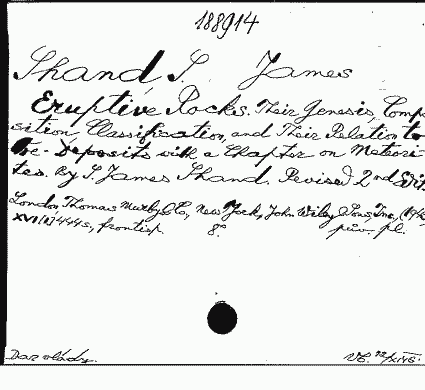 188914
Shand S. James
Eruptive Rocks. Their Genesis, Compo-
sition, Classification, and Their Relation to
Ore-Deposits with a Chapter on Meteori-
tes. By S. James Shand. Revised 2nd Edit.
London, Thomas Murby & Co, New York, John Wiley & Sons, Inc,
XVI (1) 444 s, frontisp. 8°. pl.
Dar vlády.